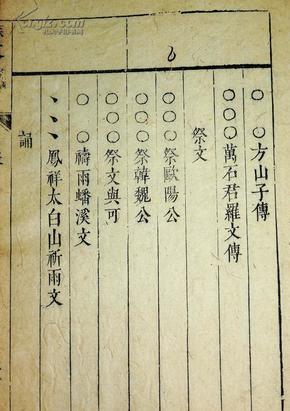 ○○方山子傳
○○○萬石君羅文傳
祭文
○○○祭歐陽公
○○○祭韓魏公
○○○祭文與可
○○禱雨蟠溪文
、、、鳳祥太白山祈雨文
誦